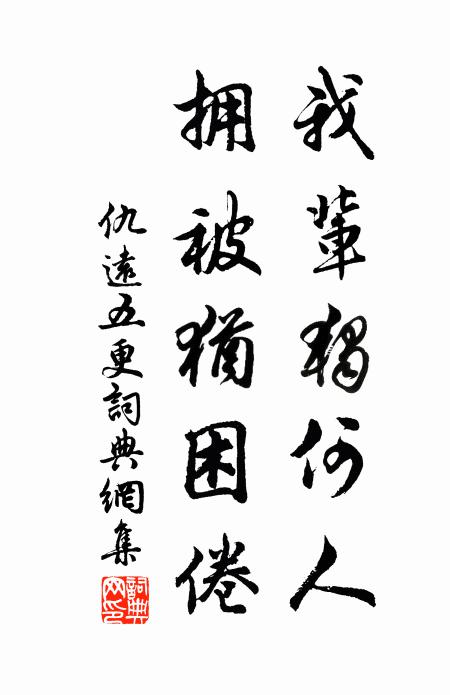 我輩獨何人
拥被猶困倦
仇遠五更詞典網集
詞典
网印